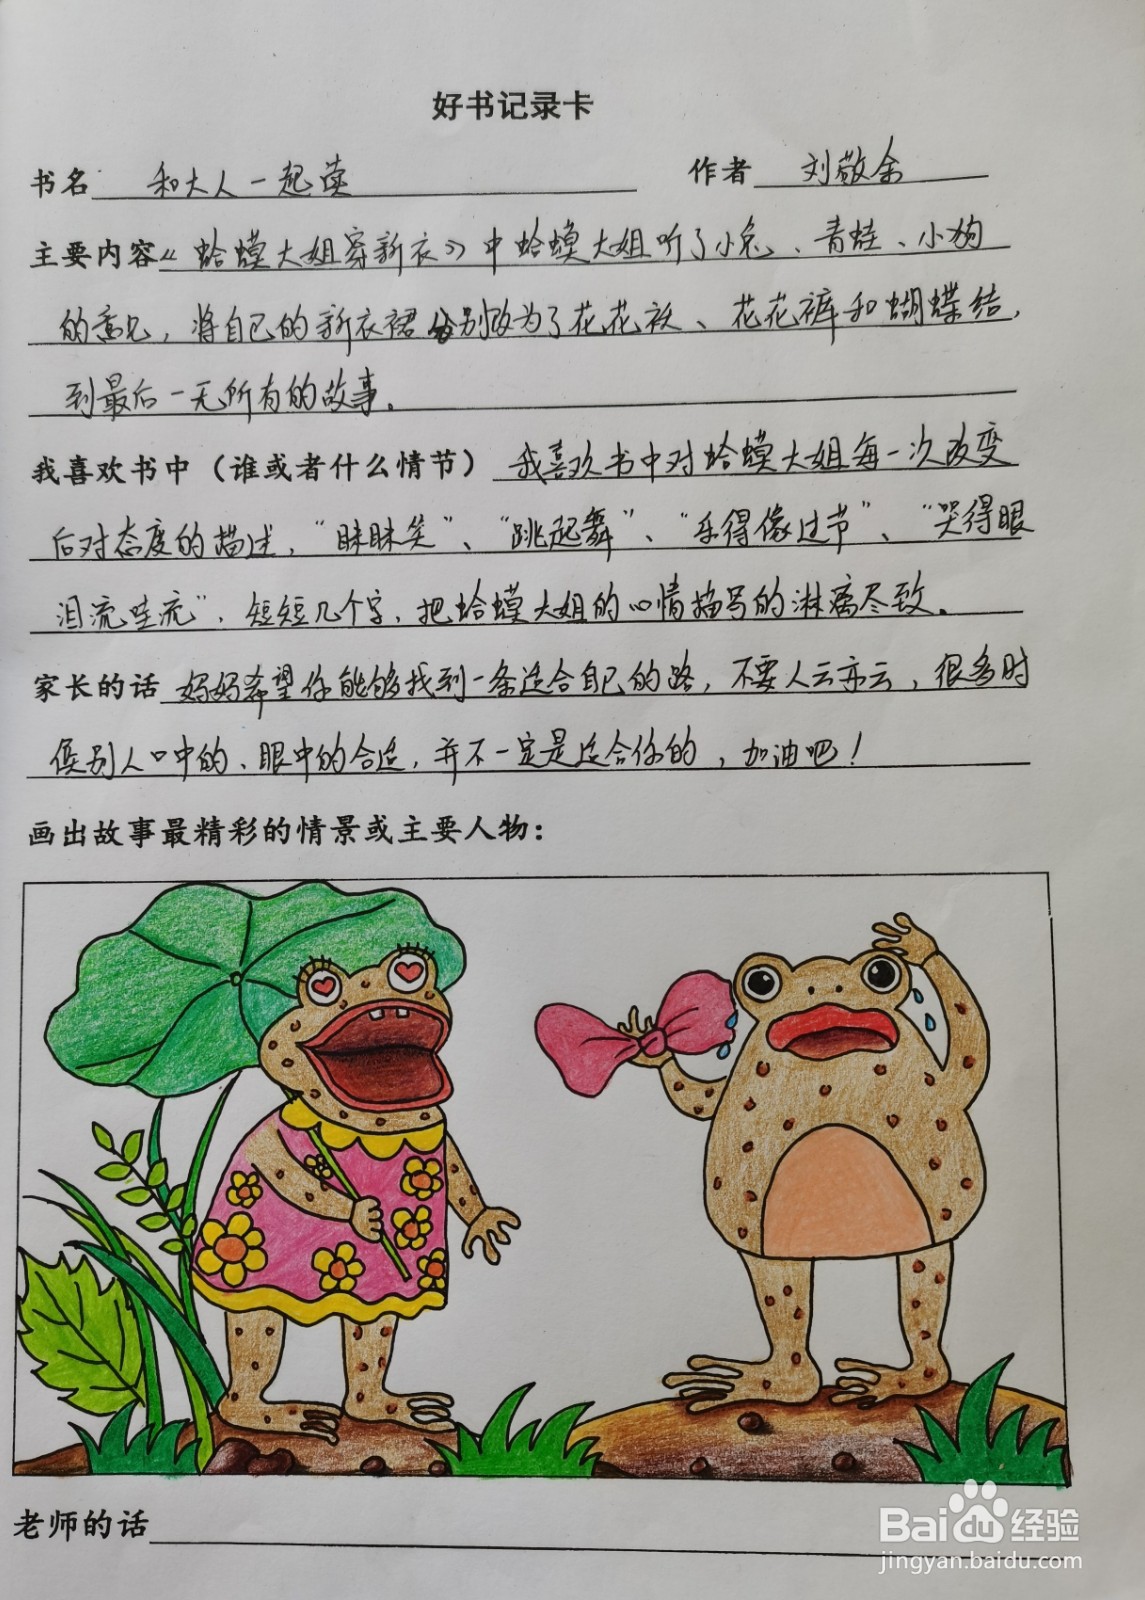 好书记录卡
书名 和大人一起读 作者 刘敬余
主要内容《蛤蟆大姐穿新衣》中蛤蟆大姐听了小兔、青蛙、小狗
的意见，将自己的新衣裙分别改为了花花袄、花花裤和蝴蝶结，
到最后一无所有的故事。
我喜欢书中（谁或者什么情节）我喜欢书中对蛤蟆大姐每一次改变
后对态度的描述，“眯眯笑”、“跳起舞”、“乐得像过节”、“哭得眼
泪流哇流”，短短几个字，把蛤蟆大姐的心情描写的淋漓尽致。
家长的话 妈妈希望你能够找到一条适合自己的路，不要人云亦云，很多时
候别人口中的、眼中的合适，并不一定是适合你的，加油吧！
画出故事最精彩的情景或主要人物：
老师的话
Baidu经验
jingyan.baidu.com